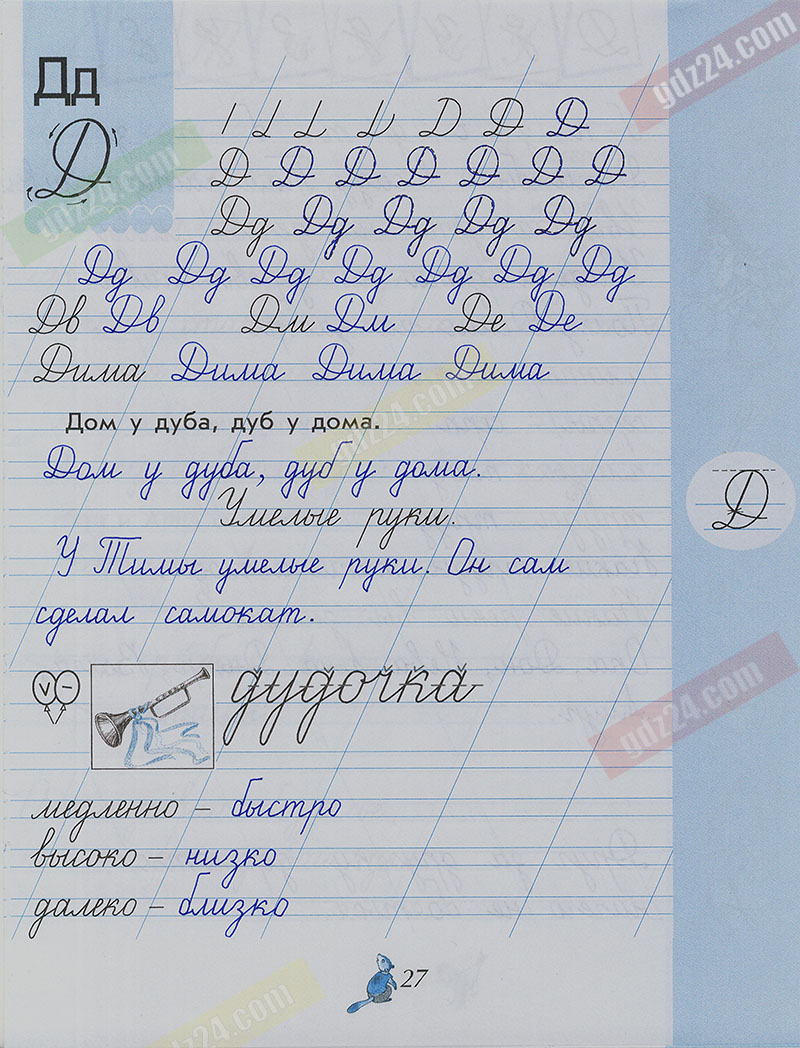 Дд
Д
Д Д
Д Д Д Д Д Д Д
Дд Дд Дд Дд Дд
Дд Дд Дд Дд Дд Дд Дд
Дв Дв Дм Дм Де Де
Дима Дима Дима Дима
Дом у дуба, дуб у дома.
Дом у дуба, дуб у дома.
Умелые руки.
У Тимы умелые руки. Он сам
сделал самокат.
Д
дудочка
медленно – быстро
высоко – низко
далеко – близко
27
gdz24.com
gdz24.com
gdz24.com
gdz24.com
gdz24.com